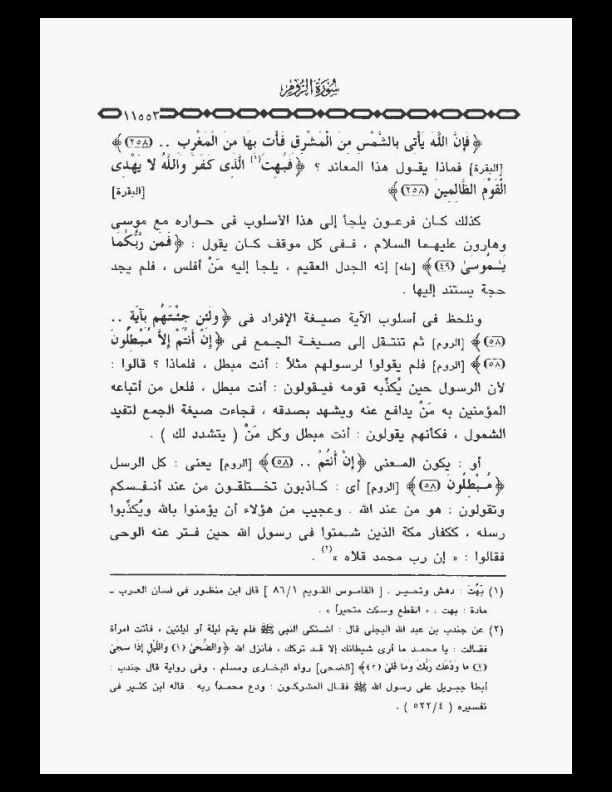 سُورَةُ الرُّومِ
١١٥٥٣
﴿ فَإِنَّ اللَّهَ يَأْتِي بِالشَّمْسِ مِنَ الْمَشْرِقِ فَأْتِ بِهَا مِنَ الْمَغْرِبِ .. (٢٥٨) ﴾
[البقرة] فماذا يقول هذا المعاند ؟ ﴿ فَبُهِتَ(١) الَّذِي كَفَرَ وَاللَّهُ لا يَهْدِي
الْقَوْمَ الظَّالِمِينَ (٢٥٨) ﴾ [البقرة]
كذلك كان فرعون يلجأ إلى هذا الأسلوب فى حواره مع موسى
وهارون عليهما السلام ، ففى كل موقف كان يقول : ﴿ فَمَن رَّبُّكُمَا
يَـٰمُوسَىٰ (٤٩) ﴾ [طه] إنه الجدل العقيم ، يلجأ إليه مَنْ أفلس ، فلم يجد
حجة يستند إليها .
ونلحظ فى أسلوب الآية صيغة الإفراد فى ﴿ وَلَئِن جِئْتَهُم بِآيَةٍ ..
(٥٨) ﴾ [الروم] ثم تنتقل إلى صيغة الجمع فى ﴿ إِنْ أَنتُمْ إِلاَّ مُبْطِلُونَ
(٥٨) ﴾ [الروم] فلم يقولوا لرسولهم مثلاً : أنت مبطل ، فلماذا ؟ قالوا :
لأن الرسول حين يُكذِّبه قومه فيقولون : أنت مبطل ، فلعل من أتباعه
المؤمنين به مَنْ يدافع عنه ويشهد بصدقه ، فجاءت صيغة الجمع لتفيد
الشمول ، فكأنهم يقولون : أنت مبطل وكل مَنْ ( يتشدد لك ) .
أو : يكون المعنى ﴿ إِنْ أَنتُمْ .. (٥٨) ﴾ [الروم] يعنى : كل الرسل
﴿ مُبْطِلُونَ (٥٨) ﴾ [الروم] أى : كاذبون تختلقون من عند أنفسكم
وتقولون : هو من عند الله . وعجيب من هؤلاء أن يؤمنوا بالله ويُكذِّبوا
رسله ، ككفار مكة الذين شمتوا فى رسول الله حين فتر عنه الوحى
فقالوا : « إن رب محمد قلاه »(٢) .
(١) بَهُتَ : دهش وتحير . [ القاموس القويم ٨٦/١ ] قال ابن منظور فى لسان العرب ـ
مادة : بهت : « انقطع وسكت متحيراً » .
(٢) عن جندب بن عبد الله البجلى قال : اشتكى النبى ﷺ فلم يقم ليلة أو ليلتين ، فأتت امرأة
فقالت : يا محمد ما أرى شيطانك إلا قد تركك ، فأنزل الله ﴿ وَالضُّحَىٰ (١) وَاللَّيْلِ إِذَا سَجَىٰ
(٢) مَا وَدَّعَكَ رَبُّكَ وَمَا قَلَىٰ (٣) ﴾ [الضحى] رواه البخارى ومسلم ، وفى رواية قال جندب :
أبطأ جبريل على رسول الله ﷺ فقال المشركون : ودع محمداً ربه . قاله ابن كثير فى
تفسيره ( ٥٢٢/٤ ) .